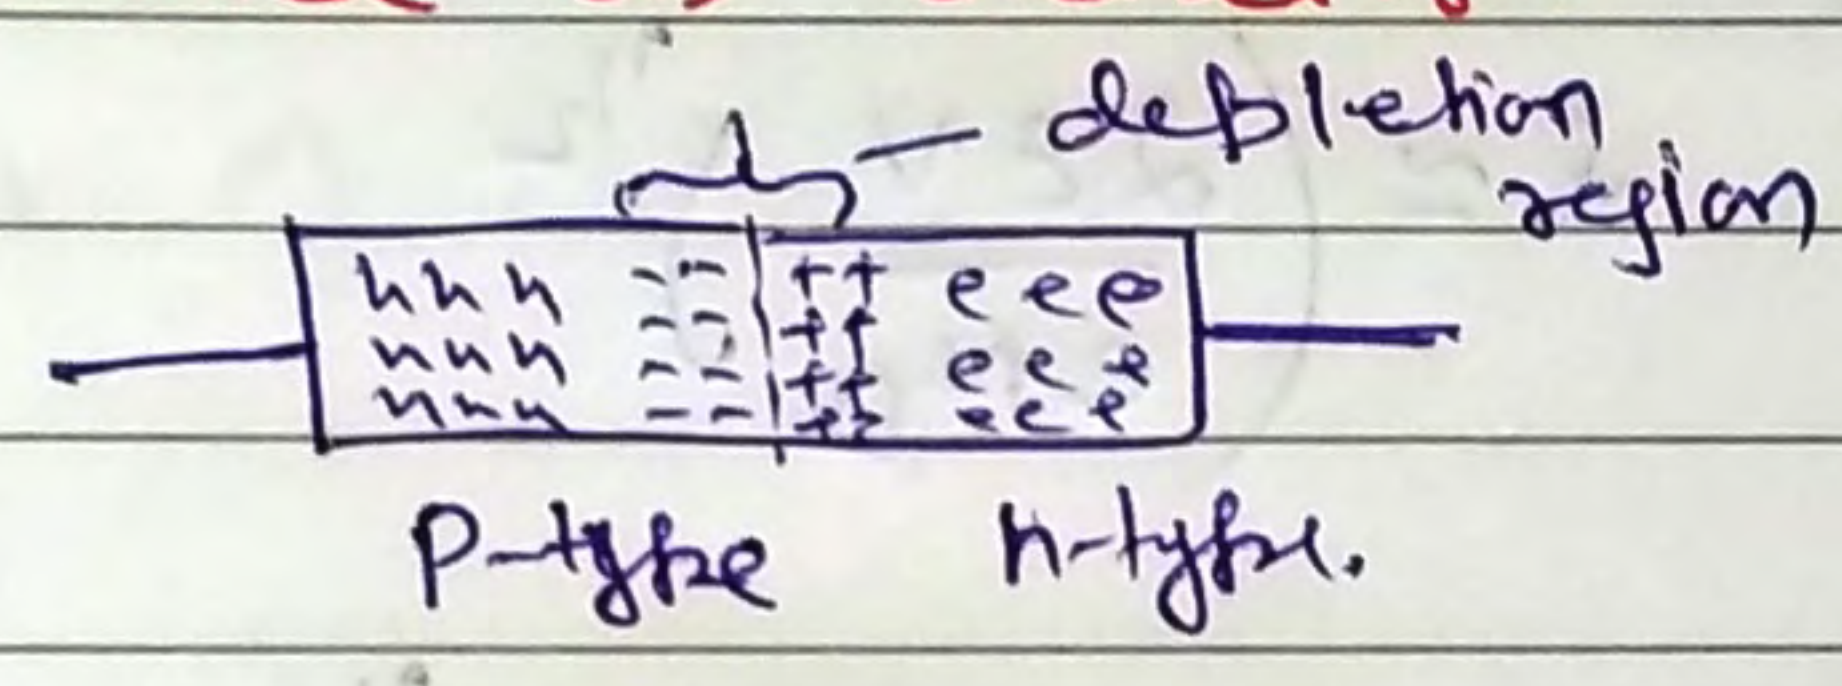 depletion
region
h h h -- ++ e e e
h h h -- ++ e e e
h h h -- ++ e e e
-- ++
P-type n-type.